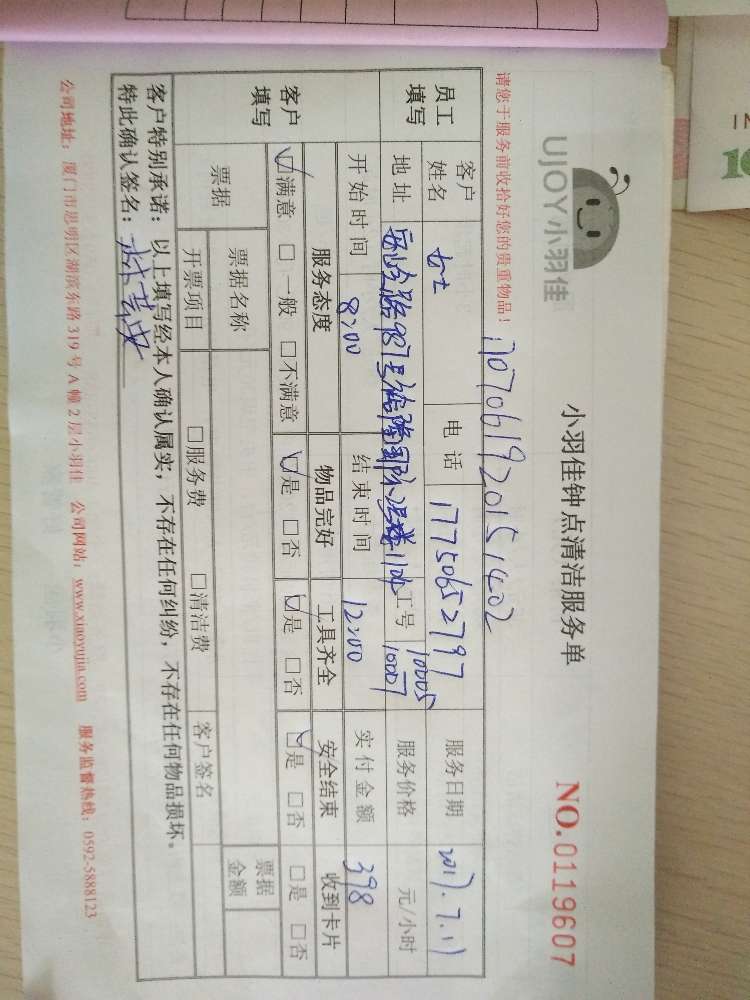 UJOY小羽佳
小羽佳钟点清洁服务单
NO.0119607
请您于服务前收拾好您的贵重物品!
1707061920151402
员工填写
客户姓名 女士 电话 17750652797 服务日期 2017.7.11
地址 987号 工号 10005 10007 服务价格 元/小时
开始时间 8:00 结束时间 12:00 实付金额 398
客户填写
服务态度 物品完好 工具齐全 安全结束 收到卡片
☑满意 □一般 □不满意 ☑是 □否 ☑是 □否 ☑是 □否 □是 □否
票据 票据名称 票据金额
开票项目 □服务费 □清洁费 客户签名
客户特别承诺:以上填写经本人确认属实,不存在任何纠纷,不存在任何物品损坏。
特此确认签名:
公司地址:厦门市思明区湖滨东路319号A幢2层小羽佳 公司网站:www.xiaoyujia.com 服务监督热线:0592-5888123